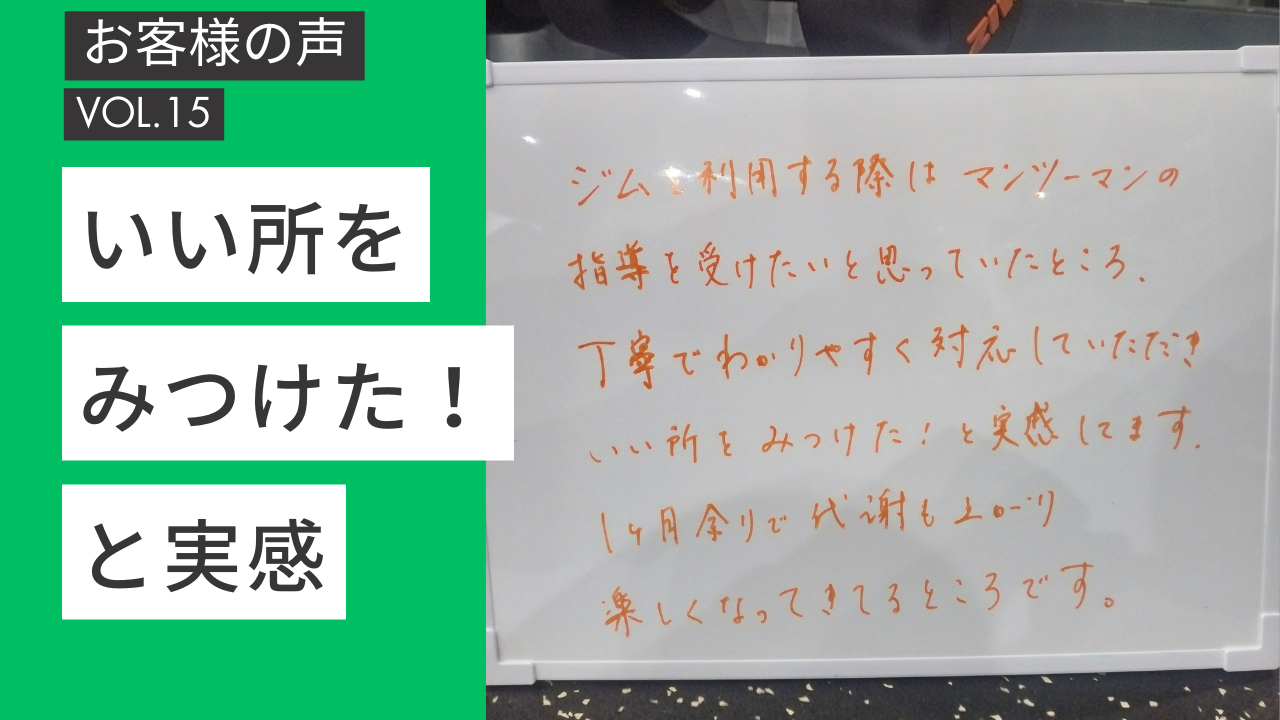 お客様の声
VOL.15
いい所を
みつけた！
と実感
ジムを利用する際は マンツーマンの
指導を受けたいと思っていたところ、
丁寧でわかりやすく対応していただき
いい所をみつけた！と実感してます.
1ヶ月余りで代謝も上がり
楽しくなってきてるところです。